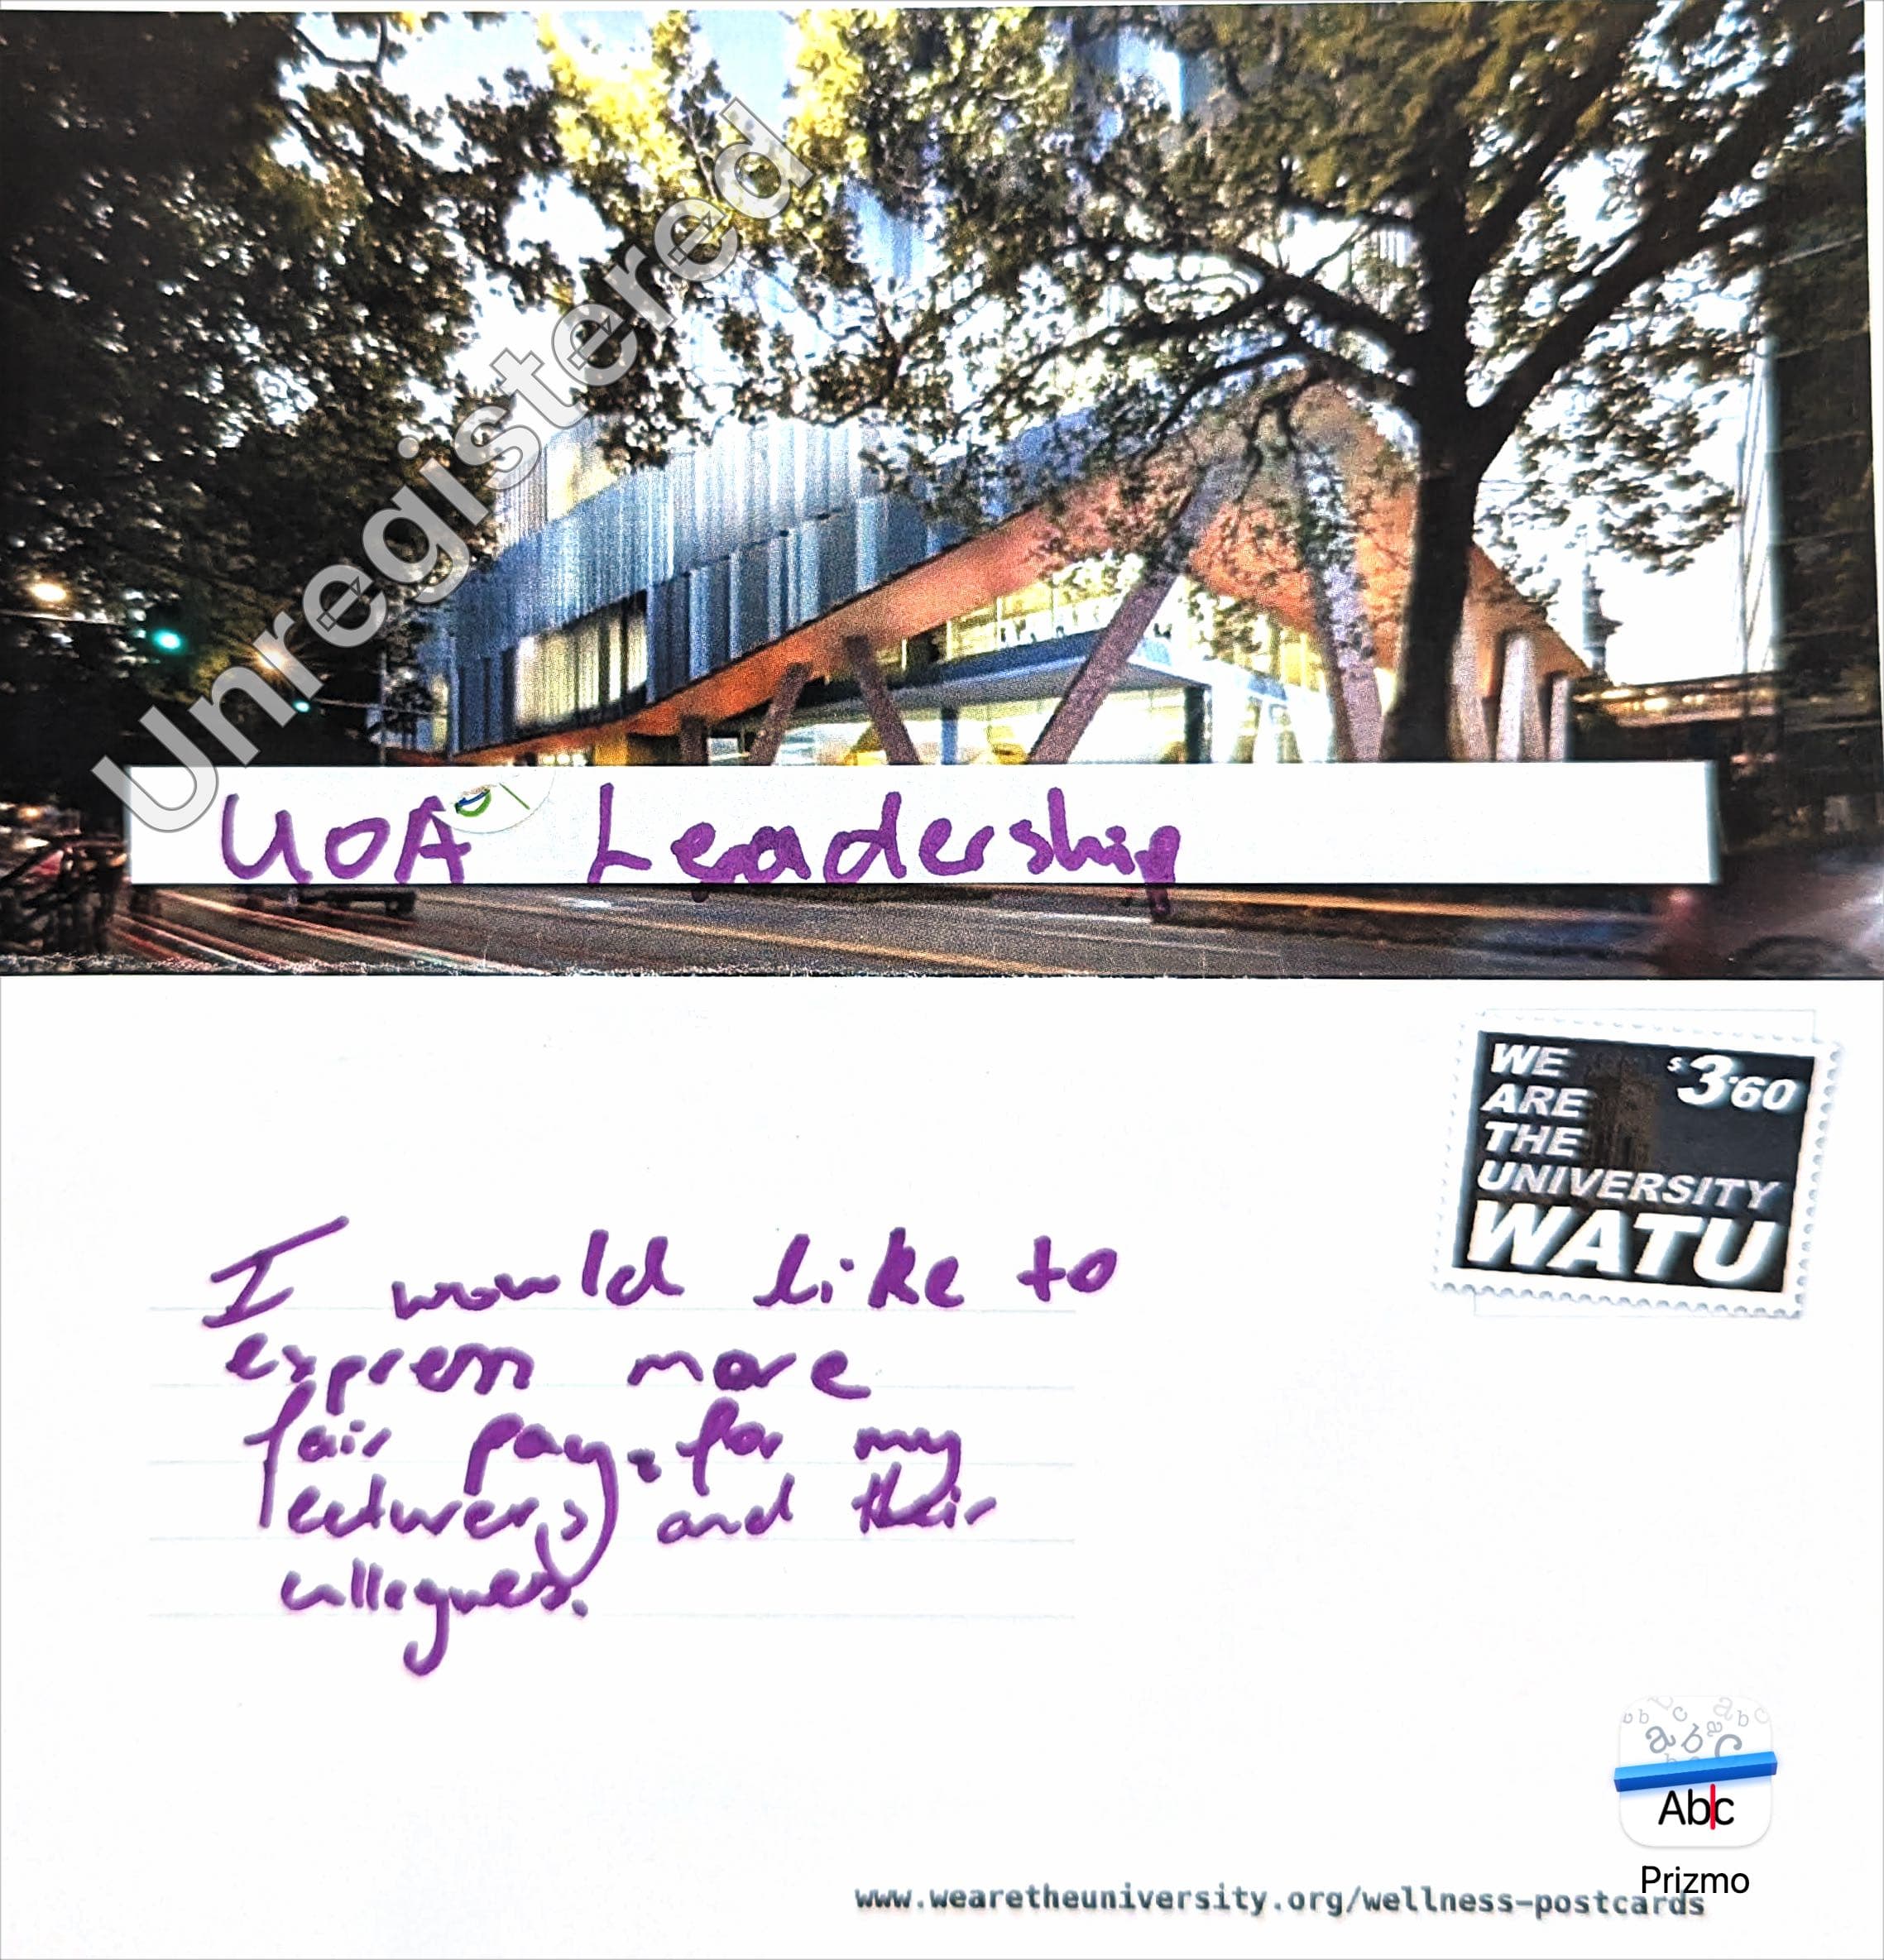 Unregistered
UOA Leadership
WE
ARE
THE
UNIVERSITY
WATU
$3.60
I would like to
express more
fair pay for my
lecturers and their
collegues.
Abc
Prizmo
www.wearetheuniversity.org/wellness-postcards